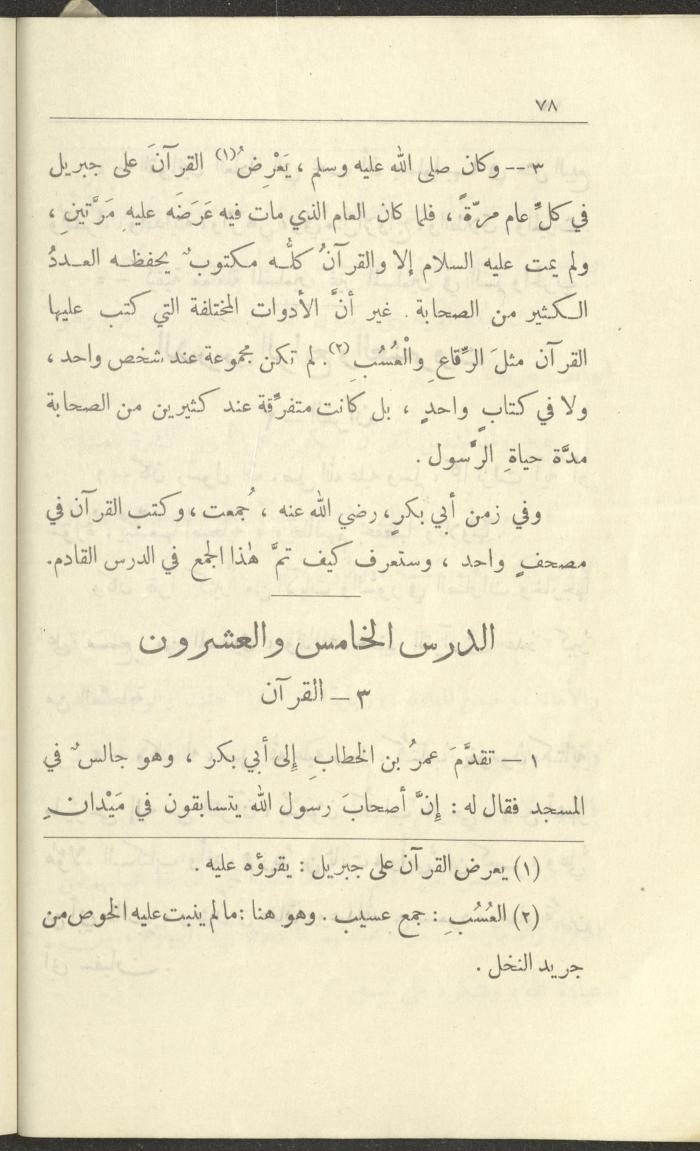 ٧٨
٣ -- وكان صلى الله عليه وسلم ، يَعْرِضُ(١) القرآنَ على جبريل
في كلِّ عام مرّةً ، فلما كان العام الذي مات فيه عَرَضَه عليه مَرَّتينِ ،
ولم يمت عليه السلام إلا والقرآنُ كلُّه مكتوبٌ يحفظه العددُ
الكثير من الصحابة . غير أنَّ الأدوات المختلفة التي كتب عليها
القرآن مثلَ الرِّقاعِ والْعُسُبِ(٢). لم تكن مجموعة عند شخص واحد ،
ولا في كتابٍ واحدٍ ، بل كانت متفرِّقة عند كثيرين من الصحابة
مدَّة حياةِ الرَّسول .
وفي زمن أبي بكرٍ ، رضي الله عنه ، جُمعت ، وكتب القرآن في
مصحفٍ واحد ، وستعرف كيف تمَّ هٰذا الجمع في الدرس القادم.
الدرس الخامس والعشرون
٣ — القرآن
١ — تقدَّمَ عمرُ بن الخطابِ إلى أبي بكر ، وهو جالسٌ في
المسجد فقال له : إنَّ أصحابَ رسول الله يتسابقون في مَيْدانِ
(١) يعرض القرآن على جبريل : يقرؤه عليه .
(٢) العُسُبِ : جمع عسيب . وهو هنا : ما لم ينبت عليه الخوص من
جريد النخل .